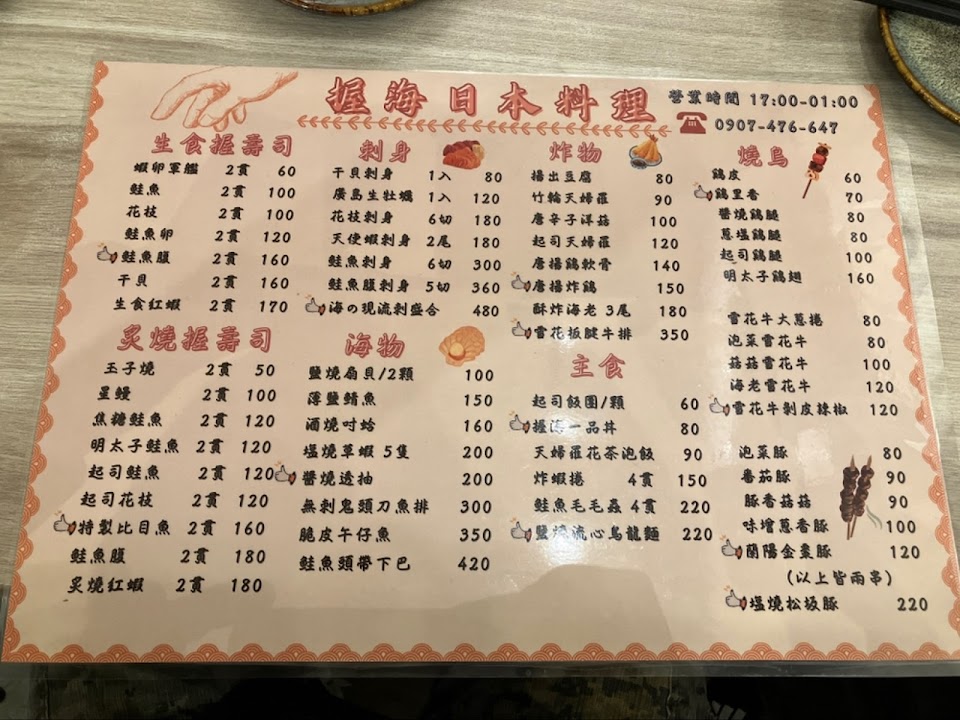 握海日本料理
營業時間 17:00-01:00
☎ 0907-476-647
生食握壽司
蝦卵軍艦 2貫 60
鮭魚 2貫 100
花枝 2貫 100
鮭魚卵 2貫 120
鮭魚腹 2貫 160
干貝 2貫 160
生食紅蝦 2貫 170
炙燒握壽司
玉子燒 2貫 50
星鰻 2貫 100
焦糖鮭魚 2貫 120
明太子鮭魚 2貫 120
起司鮭魚 2貫 120
起司花枝 2貫 120
特製比目魚 2貫 160
鮭魚腹 2貫 180
炙燒紅蝦 2貫 180
刺身
干貝刺身 1入 80
廣島生牡蠣 1入 120
花枝刺身 6切 180
天使蝦刺身 2尾 180
鮭魚刺身 6切 300
鮭魚腹刺身 5切 360
海の現流刺盛合 480
海物
鹽燒扇貝/2顆 100
薄鹽鯖魚 150
酒燒吋蛤 160
塩燒草蝦 5隻 200
醬燒透抽 200
無刺鬼頭刀魚排 300
脆皮午仔魚 350
鮭魚頭帶下巴 420
炸物
揚出豆腐 80
竹輪天婦羅 90
唐辛子洋菇 100
起司天婦羅 120
唐揚鷄軟骨 140
唐揚炸鷄 150
酥炸海老 3尾 180
雪花板腱牛排 350
主食
起司飯團/顆 60
握海一品丼 80
天婦羅花茶泡飯 90
炸蝦捲 4貫 150
鮭魚毛毛蟲 4貫 220
鹽燒流心烏龍麵 220
燒鳥
鷄皮 60
鷄里香 70
醬燒鷄腿 80
蔥塩鷄腿 80
起司鷄腿 100
明太子鷄翅 160
雪花牛大蔥捲 80
泡菜雪花牛 80
菇菇雪花牛 100
海老雪花牛 120
雪花牛剝皮辣椒 120
泡菜豚 80
番茄豚 90
豚香菇菇 90
味增蔥香豚 100
蘭陽金棗豚 120
(以上皆兩串)
塩燒松坂豚 220